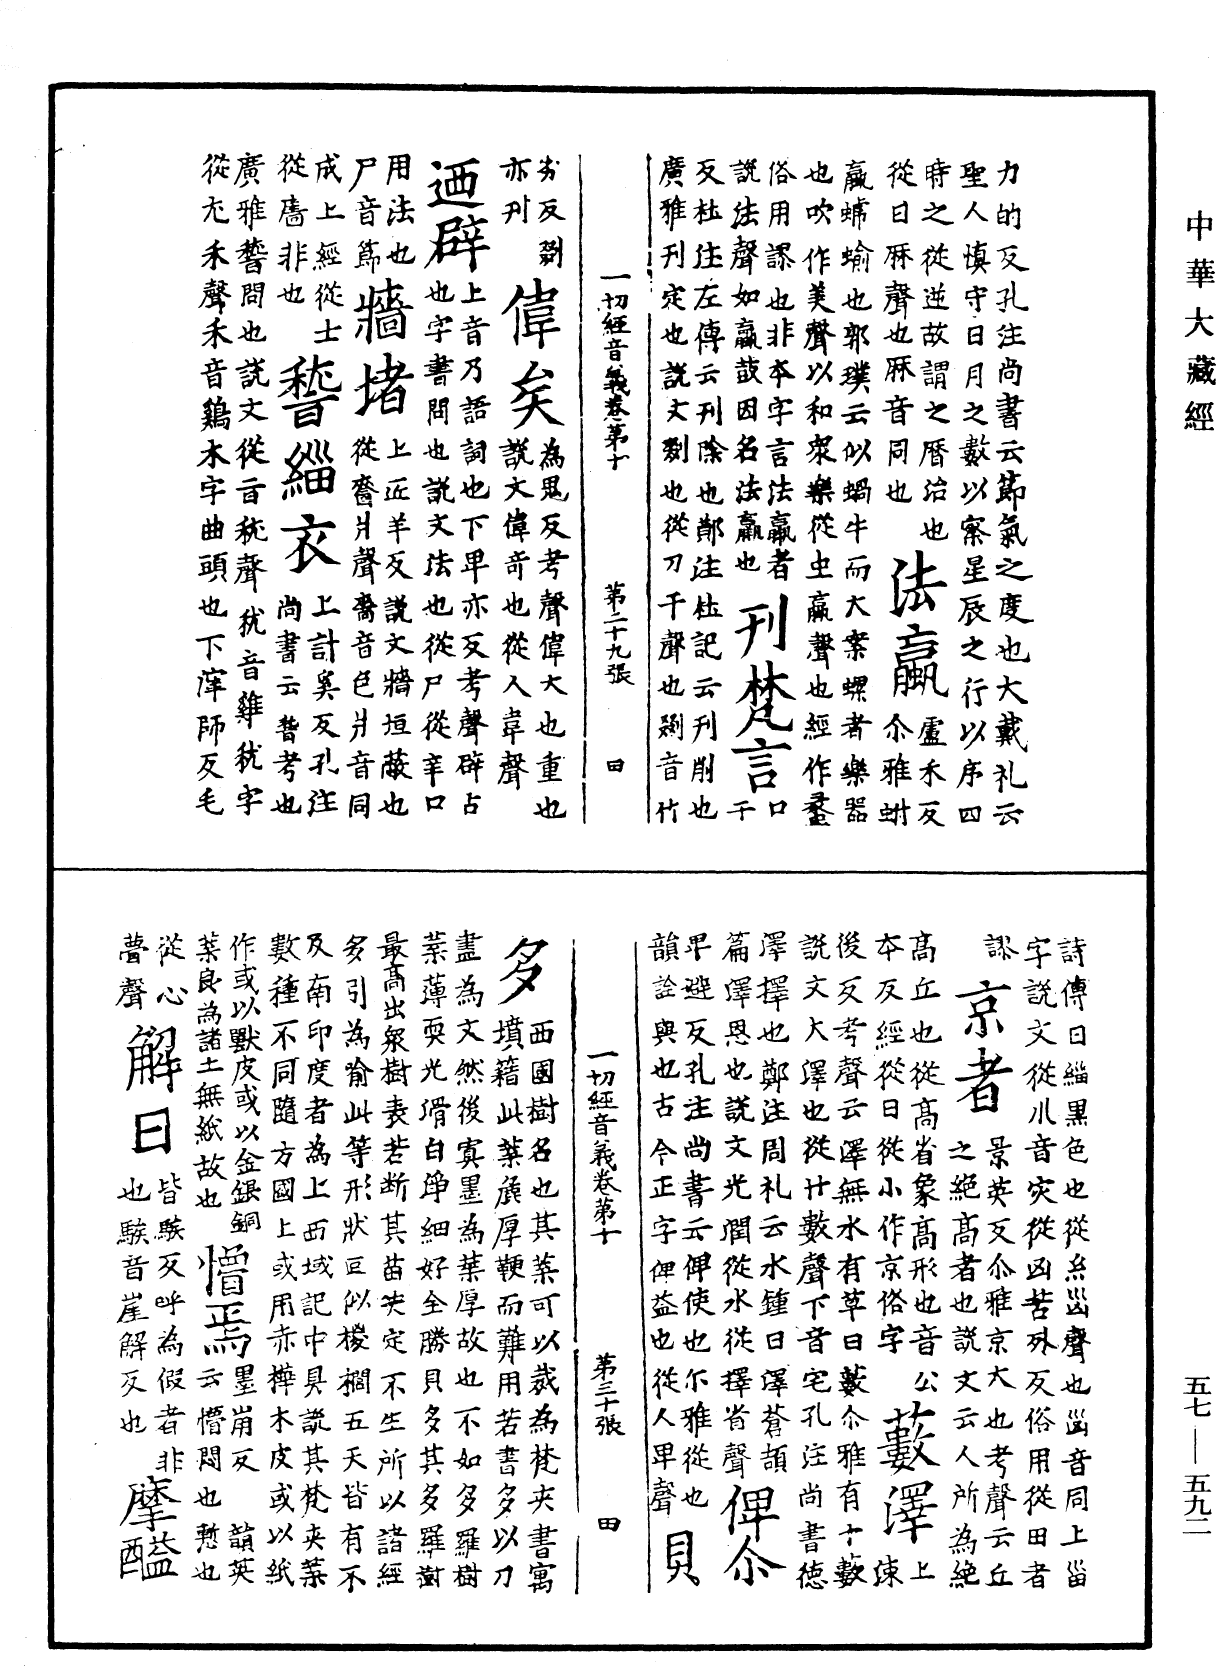 中華大藏經
力的反孔注尚書云節氣之度也大戴礼云
聖人慎守日月之數以察星辰之行以序四
時之從逆故謂之曆治也
從日厤聲也厤音同也
法蠃
盧禾反
尒雅蚹
蠃螔蝓也郭璞云似蝸牛而大案螺者樂器
也吹作美聲以和眾樂從虫蠃聲也經作蠡
俗用謬也非本字言法蠃者
說法聲如蠃鼓因名法蠃也
刊梵言
口
干
反杜注左傳云刊除也鄭注杜記云刊削也
廣雅刊定也說文剟也從刀干聲也剟音竹
一切經音義卷第十 第二十九張 田
劣反剟
亦刋
偉矣
為鬼反考聲偉大也重也
說文偉奇也從人韋聲
迺辟
上音乃語詞也下毗亦反考聲辟占
也字書問也說文法也從尸從辛口
用法也
尸音節
牆堵
上匠羊反說文牆垣蔽也
從嗇爿聲嗇音色爿音同
成上經從士
從啬非也
嵆緇衣
上計奚反孔注
尚書云嵆考也
廣雅嵆問也說文從旨嵆聲嵆音雞嵆字
從尢禾聲禾音鷄木字曲頭也下滓師反毛
詩傳曰緇黑色也從糸甾聲也甾音同上甾
字說文從巛音灾從凶苦外反俗用從田者
謬
京者
景英反尒雅京大也考聲云丘
之絕高者也說文云人所為絕
高丘也從高省象高形也音公
本反經從日從小作京俗字
藪澤
上
涑
後反考聲云澤無水有草曰藪尒雅有十藪
說文大澤也從艹數聲下音宅孔注尚書德
澤擇也鄭注周礼云水鍾曰澤蒼頡
篇澤恩也說文光潤從水從擇省聲
俾尒
卑避反孔注尚書云俾使也尒雅從也
韻詮與也古今正字俾益也從人卑聲
貝
一切經音義卷第十 第三十張 田
多
西國樹名也其葉可以裁為梵夾書寫
墳籍此葉麁厚鞕而難用若書多以刀
畫為文然後寘墨為葉厚故也不如多羅樹
葉薄耎光滑白淨細好全勝貝多其多羅樹
最高出眾樹表若断其苗决定不生所以諸經
多引為喻此等形狀叵似椶櫚五天皆有不
及南印度者為上西域記中具說其梵夾葉
數種不同隨方國土或用赤樺木皮或以紙
作或以獸皮或以金銀銅
葉良為諸土無紙故也
懵焉
墨崩反韻英
云懵悶也慙也
從心
瞢聲
解曰
皆駭反呼為假者非
也駭音崖解反也
摩醯
五七—五九二